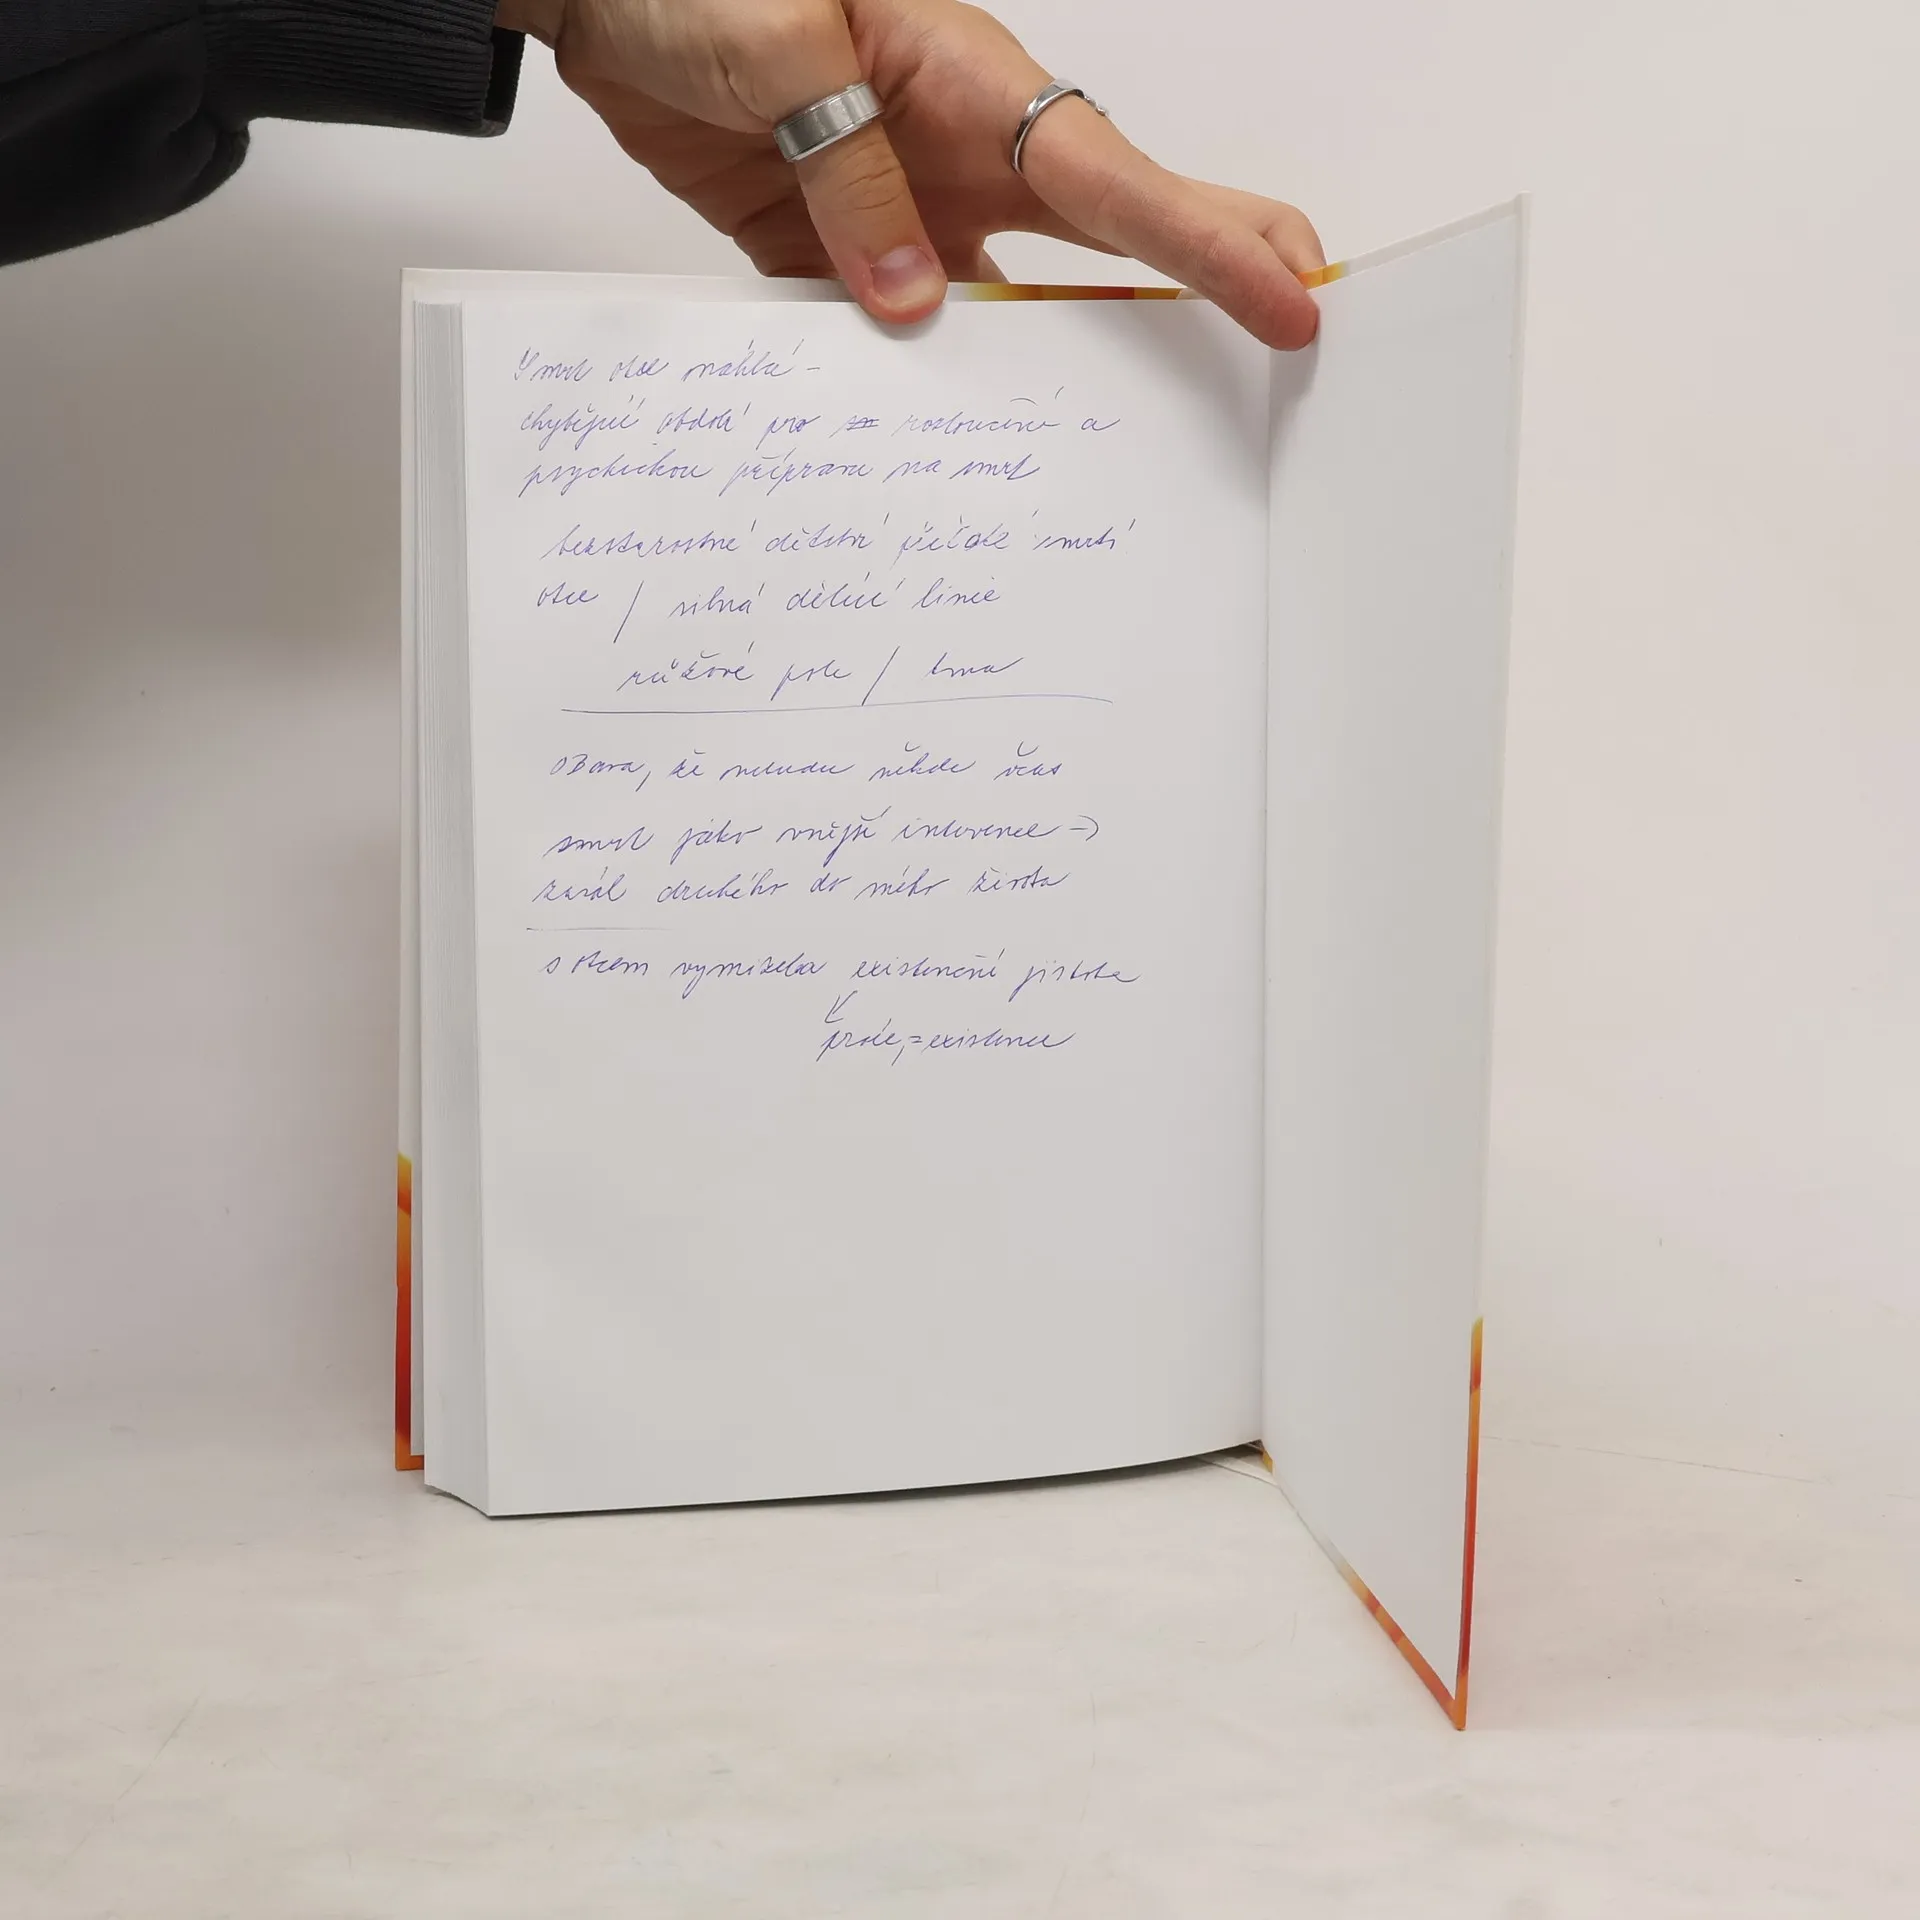 Smrt otce náhlá –
chybějící období pro rozloučení a
psychickou přípravu na smrt
bezstarostné dětství přeťaté smrtí
otce / silná dělící linie
růžové pole / tma
obava, že nebudu někde včas
smrt jako vnější intervence →
druhého do mého života
s otcem vymizela existenční jistota
práce, = existence